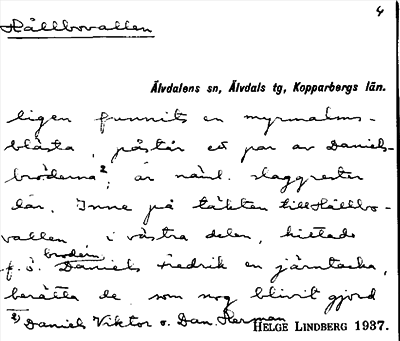 Hållbovallen
4
Älvdalens sn, Älvdals tg, Kopparbergs län.
ligen funnits en myrmalms-
blästa, påstår ett par av Daniels-
bröderna²; är nämt. slaggrester
där. Inne på täkten till Hållbo-
vallen, i västra delen, hittade
f. ö. brodern Daniels Fredrik en järntacka,
berätta de, som nog blivit gjord
²) Daniels Viktor o. Dan. Herman
HELGE LINDBERG 1937.